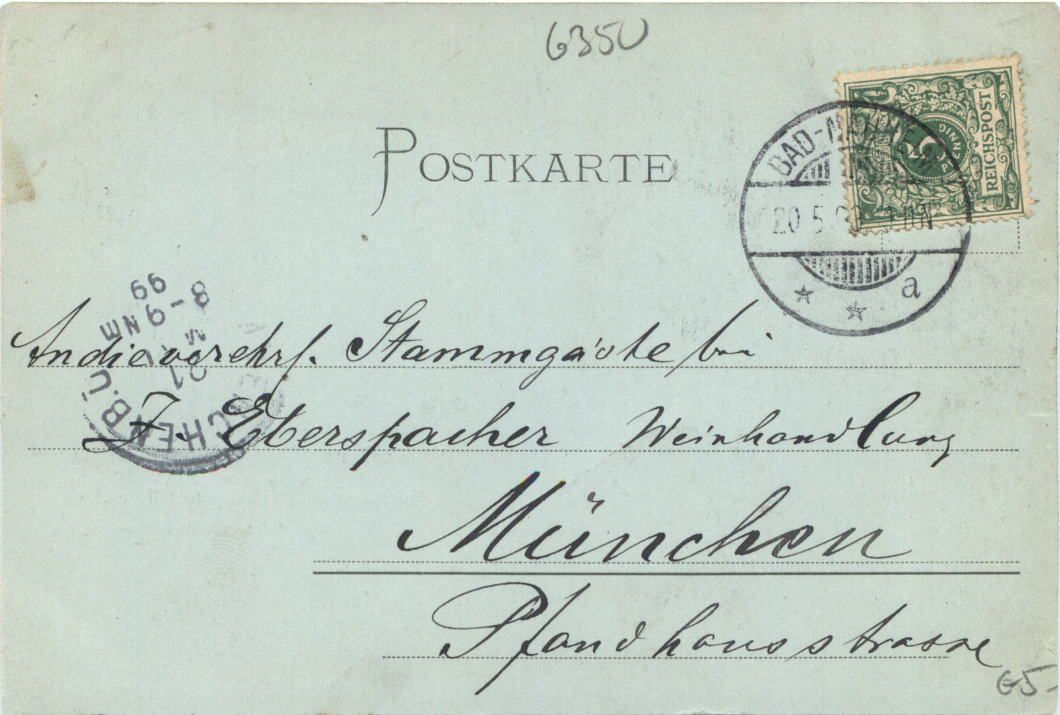 6350
POSTKARTE
5
REICHSPOST
BAD-NAUHEIM
20 5 99
a
99
8-9 NM
21 MAI
MÜNCHEN B.Ü.
An die verehrl. Stammgäste bei
J. Eberspacher Weinhandlung
München
Pfandhausstrasse
65-